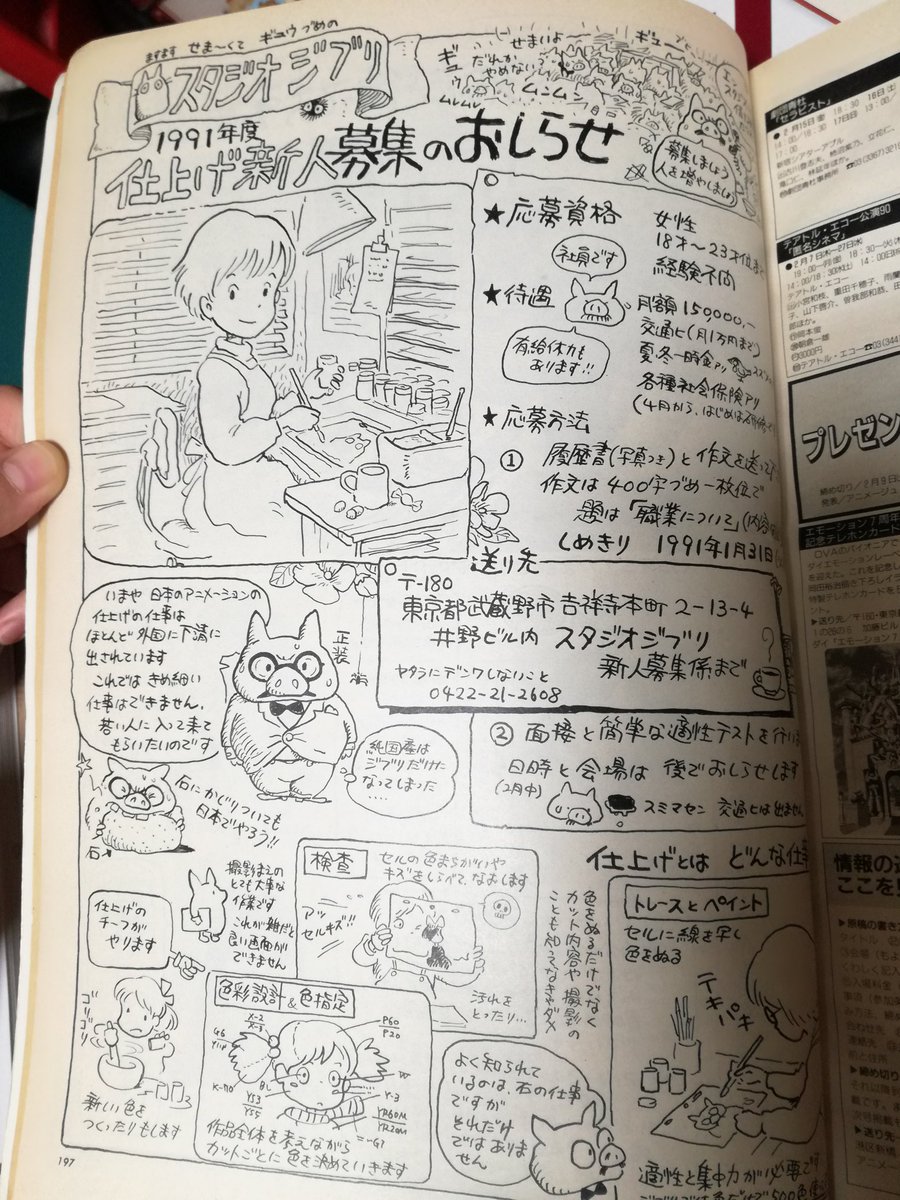 ますます せま〜くて ギュウづめの
スタジオジブリ
1991年度
仕上げ新人募集のおしらせ
せまいよ〜
ギュー
だれか
やめない?
ギュウ
ムンムン
ムレムレ
募集しましょう
人を増やしましょう
★応募資格
女性
18才〜23才位まで
経験不問
社員です
★待遇
月額150,000,-
交通ヒ(月1万円まで)
夏冬一時金アリ
各種社会保険アリ
(4月から、はじめは
有給休カも
あります!!
★応募方法
① 履歴書(写真つき)と作文を送って
作文は400字づめ一枚位で
題は「職業について」(内容
しめきり 1991年1月31日
送り先
〒180
東京都武蔵野市吉祥寺本町2-13-4
井野ビル内 スタジオジブリ
新人募集係まで
ヤタラにデンワしないこと
0422-21-2608
② 面接と簡単な適性テストを行い
日時と会場は 後でおしらせします
(2月中)
スミマセン 交通ヒは出ません
いまや 日本のアニメーションの
仕上げの仕事は
ほとんど外国に下請に
出されています
これでは きめ細い
仕事はできません。
若い人に入って来て
もらいたいのです
正装
純国産は
ジブリだけに
なってしまった
…
石にかじりついても
日本でやろう!!
石
撮影まえの
とても大事な
作業です
これが雑だと
良い画面が
できません
検査
セルの色まちがいや
キズをしらべて、なおします
アッ
セルキズ!!
汚れを
とったり…
仕上げとは どんな仕事
色をぬるだけでなく
カット内容や撮影の
ことも知ってなきゃダメ
トレースとペイント
セルに線を写し
色をぬる
テキパキ
仕上げの
チーフが
やります
ゴリゴリ
新しい色を
つくったりもします
色彩設計&色指定
X-2
X-3
P60
P20
Y-3
YR60M
YR20M
Y53
Y55
BL
作品全体を考えながら
カットごとに色を決めていきます
よく知られて
いるのは、右の仕事
ですが
それだけ
ではありま
せん
適性と集中力が必要です
197
劇団青社
「セラピスト」
テアトル・エコー公演90
「匿名シネマ」
プレゼン
エモーション7周年
記念テレホンカード
情報の
ここを